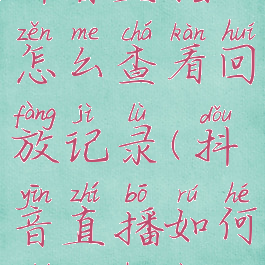 zěn me chá kàn huí
怎么查看回
fàng jì lù dǒu
放记录(抖
yīn zhí bō rú hé
音直播如何